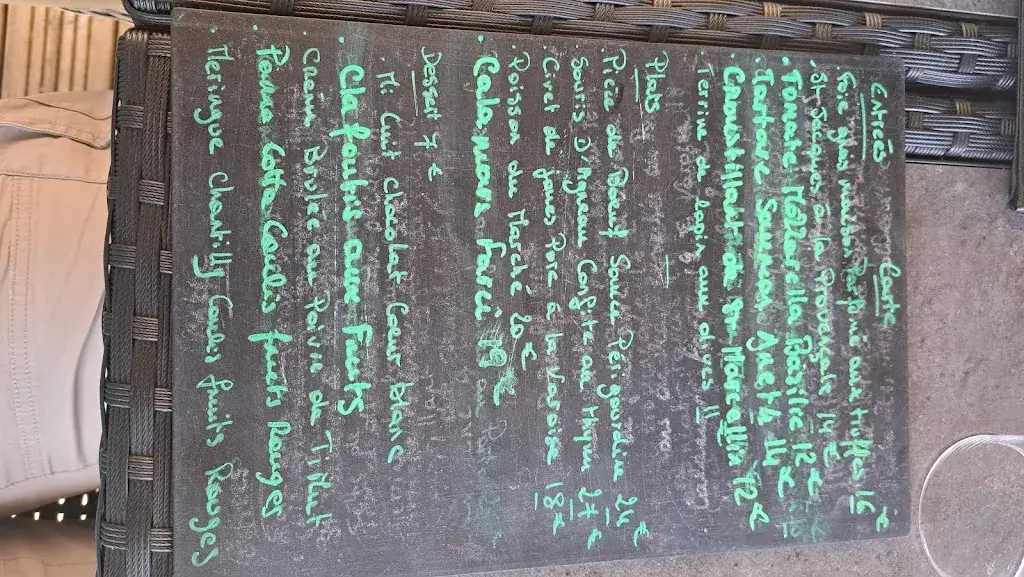 Carte
Entrées
Foie gras maison Parfumé aux truffes 16€
. St Jacques à la Provençale 14€
. Tomate Mozzarella Basilic 12€
. Tartare Saumon Aneth 14€
. Croustillant de St Marcellin 12€
Terrine de lapin aux olives 11
Plats
. Pièce de Boeuf Sauce Périgourdine 24€
Souris D'Agneau Confite au Thym 27€
. Civet de joues Porc à la Varoise 18€
. Poisson du Marché 20€
. Calamars farci 19€
Dessert 7€
. Mi Cuit chocolat Coeur Blanc
. Clafoutis aux Fruits
Crème Brulée au Poivre de Timut
Panna Cotta Coulis fruits Rouges
. Meringue chantilly Coulis fruits Rouges